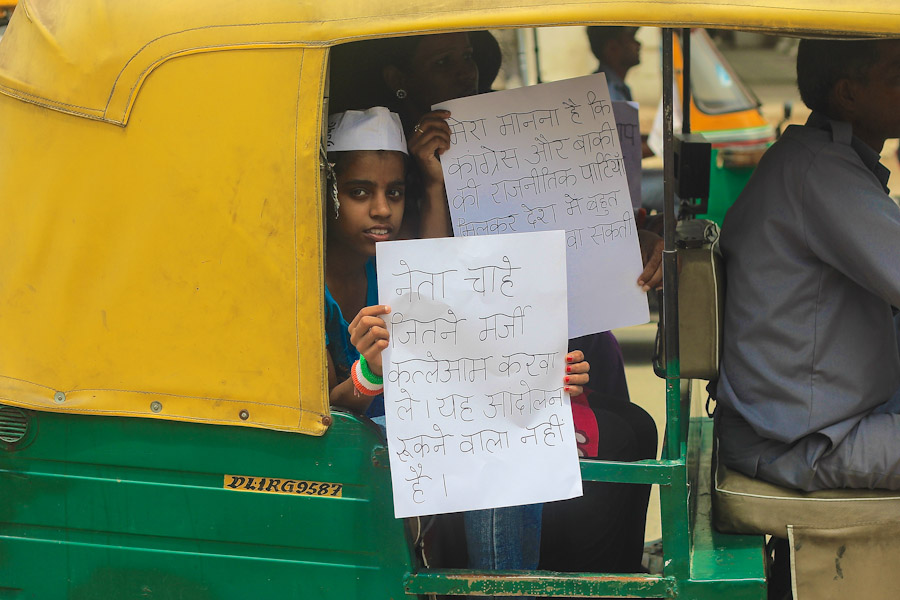 मेरा मानना है कि
कांग्रेस और बाकी
की राजनीतिक पार्टियाँ
मिलकर देश में बहुत
वा सकती
नेता चाहे
जितने मर्जी
कत्लेआम करवा
ले। यह आंदोलन
रूकने वाला नहीं
है।
DL1RG9587